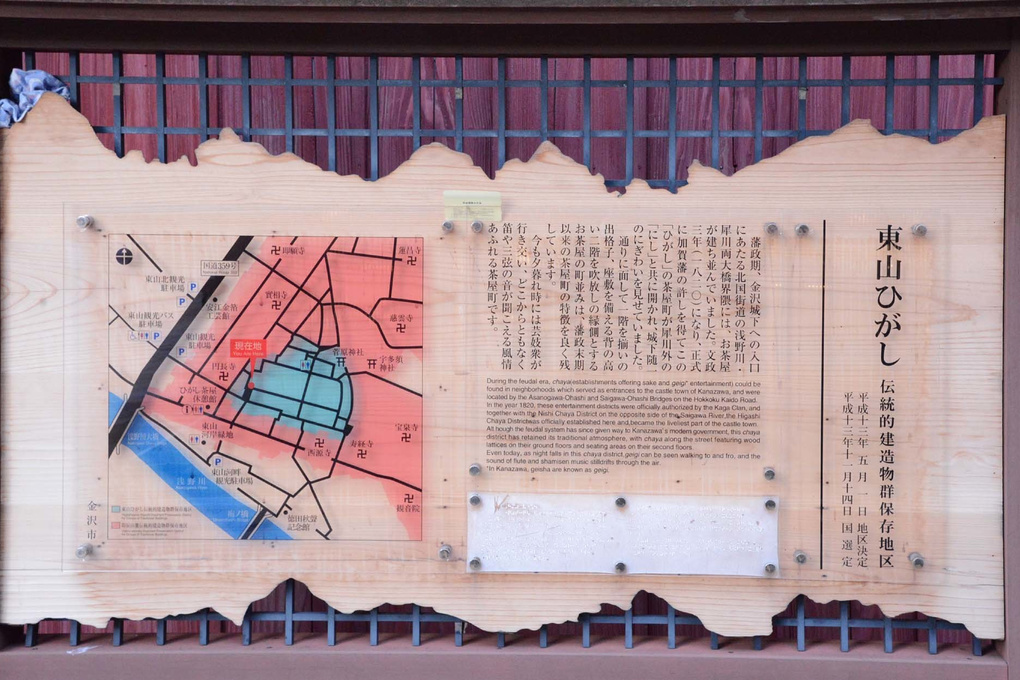 東山ひがし 伝統的建造物群保存地区
平成十三年 五月 一日 地区決定
平成十三年十一月十四日 国選定
藩政期、金沢城下への入口
にあたる北国街道の浅野川・
犀川両大橋界隈には、お茶屋
が建ち並んでいました。文政
三年(一八二〇)になり、正式
に加賀藩の許しを得てこの
「ひがし」の茶屋町が犀川外の
「にし」と共に開かれ、城下随一
のにぎわいを見せていました。
通りに面して一階を揃いの
出格子、座敷を備える背の高
い二階を吹放しの縁側とする
お茶屋の町並みは、藩政末期
以来の茶屋町の特徴を良く残
しています。
今も夕暮れ時には芸妓衆が
行き交い、どこからともなく
笛や三弦の音が聞こえる風情
あふれる茶屋町です。
During the feudal era, chaya(establishments offering sake and geigi* entertainment) could be
found in neighborhoods which served as entrances to the castle town of Kanazawa, and were
located by the Asanogawa-Ohashi and Saigawa-Ohashi Bridges on the Hokkoku Kaido Road.
In the year 1920, these entertainment districts were officially authorized by the Kaga Clan, and
together with the Nishi Chaya District on the opposite side of the Saigawa River,the Higashi
Chaya Districtwas officially established here and became the liveliest part of the castle town.
At hough the feudal system has since given way to Kanazawa's modern government, this chaya
district has retained its traditional atmosphere, with chaya along the street featuring wood
lattices on their ground floors and seating areas on their second floors.
Even today, as night falls in this chaya district,geigi can be seen walking to and fro, and the
sound of flute and shamisen music stilldrifts through the air.
*In Kanazawa, geisha are known as geigi.
国道359号
蓮昌寺
東山北観光
駐車場
安江金箔
工芸館
実相寺
慈雲寺
東山観光バス
駐車場
東山観光
駐車場
現在地
菅原神社
宇多須
神社
円長寺
ひがし茶屋
休憩館
東山
河岸緑地
西源寺
寿経寺
宝泉寺
浅野川大橋
東山河畔
観光駐車場
浅野川
梅ノ橋
徳田秋聲
記念館
観音院
金沢市